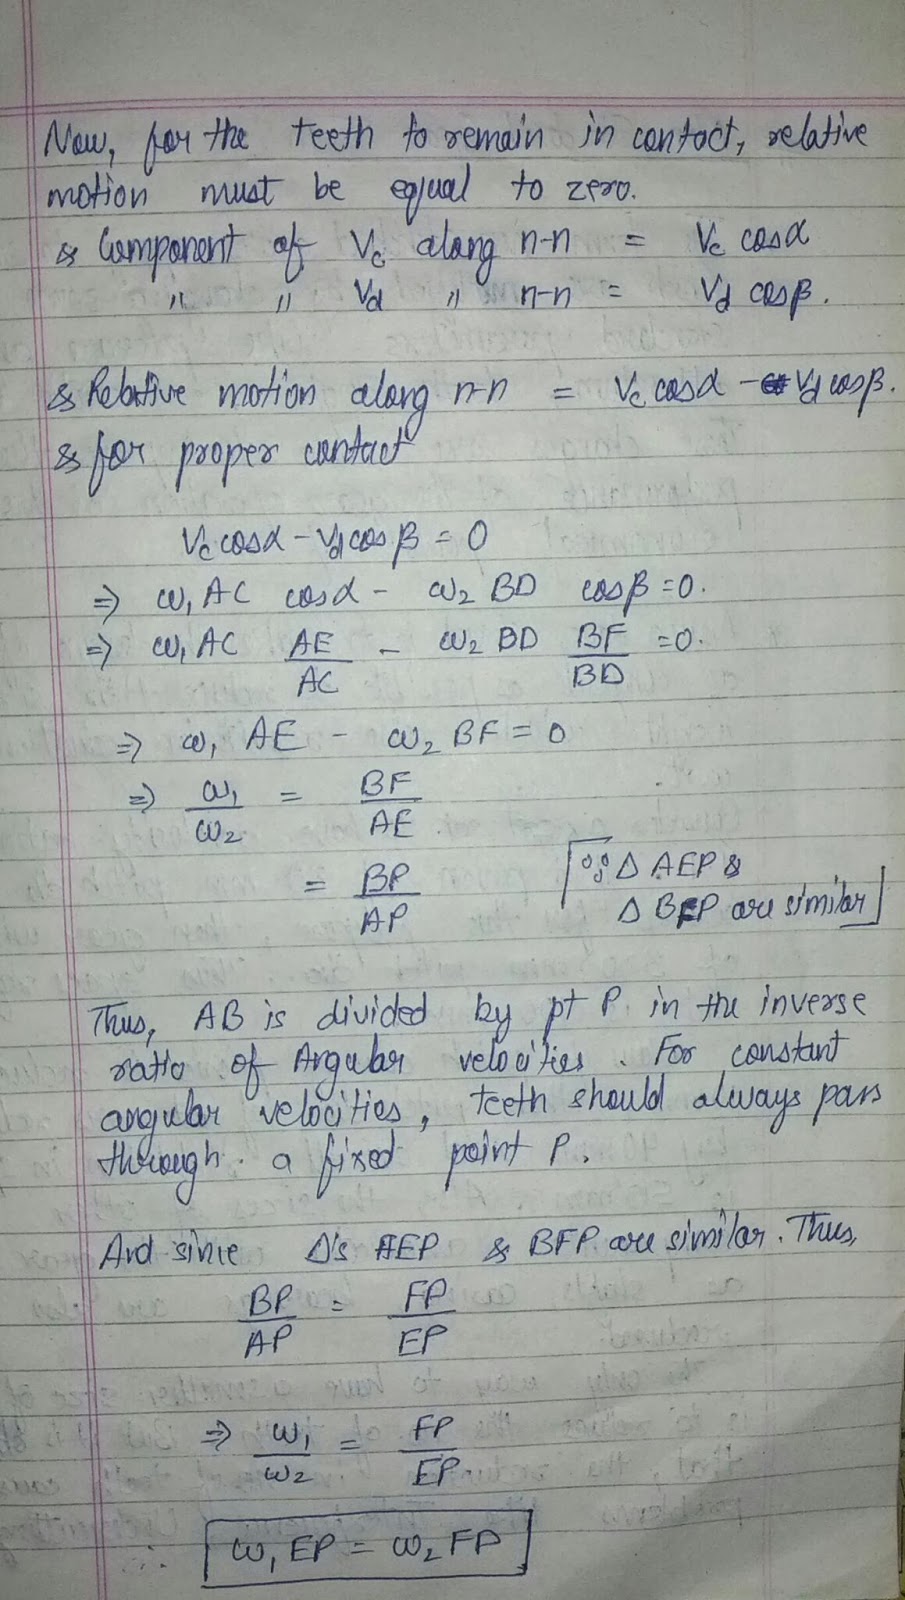 Now, for the teeth to remain in contact, relative
motion must be equal to zero.
& Component of Vc along n-n = Vc cosα
" " Vd " n-n = Vd cosβ.
& Relative motion along n-n = Vc cosα - Vd cosβ.
& for proper contact
Vc cosα - Vd cosβ = 0
⇒ ω₁ AC cosα - ω₂ BD cosβ = 0.
⇒ ω₁ AC AE/AC - ω₂ BD BF/BD = 0.
⇒ ω₁ AE - ω₂ BF = 0
⇒ ω₁/ω₂ = BF/AE
= BP/AP [∵ Δ AEP &
Δ BFP are similar]
Thus, AB is divided by pt P. in the inverse
ratio of Angular velocities. For constant
angular velocities, teeth should always pass
through a fixed point P.
And since Δ's AEP & BFP are similar. Thus,
BP/AP = FP/EP
⇒ ω₁/ω₂ = FP/EP
∴ ω₁ EP = ω₂ FP